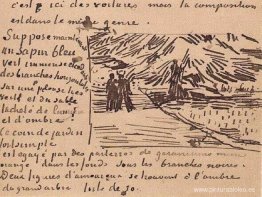 c'est ici des voitures mais la composition
est dans le même genre.
Suppose maintenant
un sapin bleu
vert immense
des branches horizontales
sur une pelouse très
verte et du sable
tacheté de lumière
et d'ombre
Le coin de jardin
fort simple
est égayé par des parterres de géraniums mine
orange dans les fonds sous les branches noires.
Deux figures d'amoureux se trouvent à l'ombre
du grand arbre toile de 30.
www.pinturasoleos.es